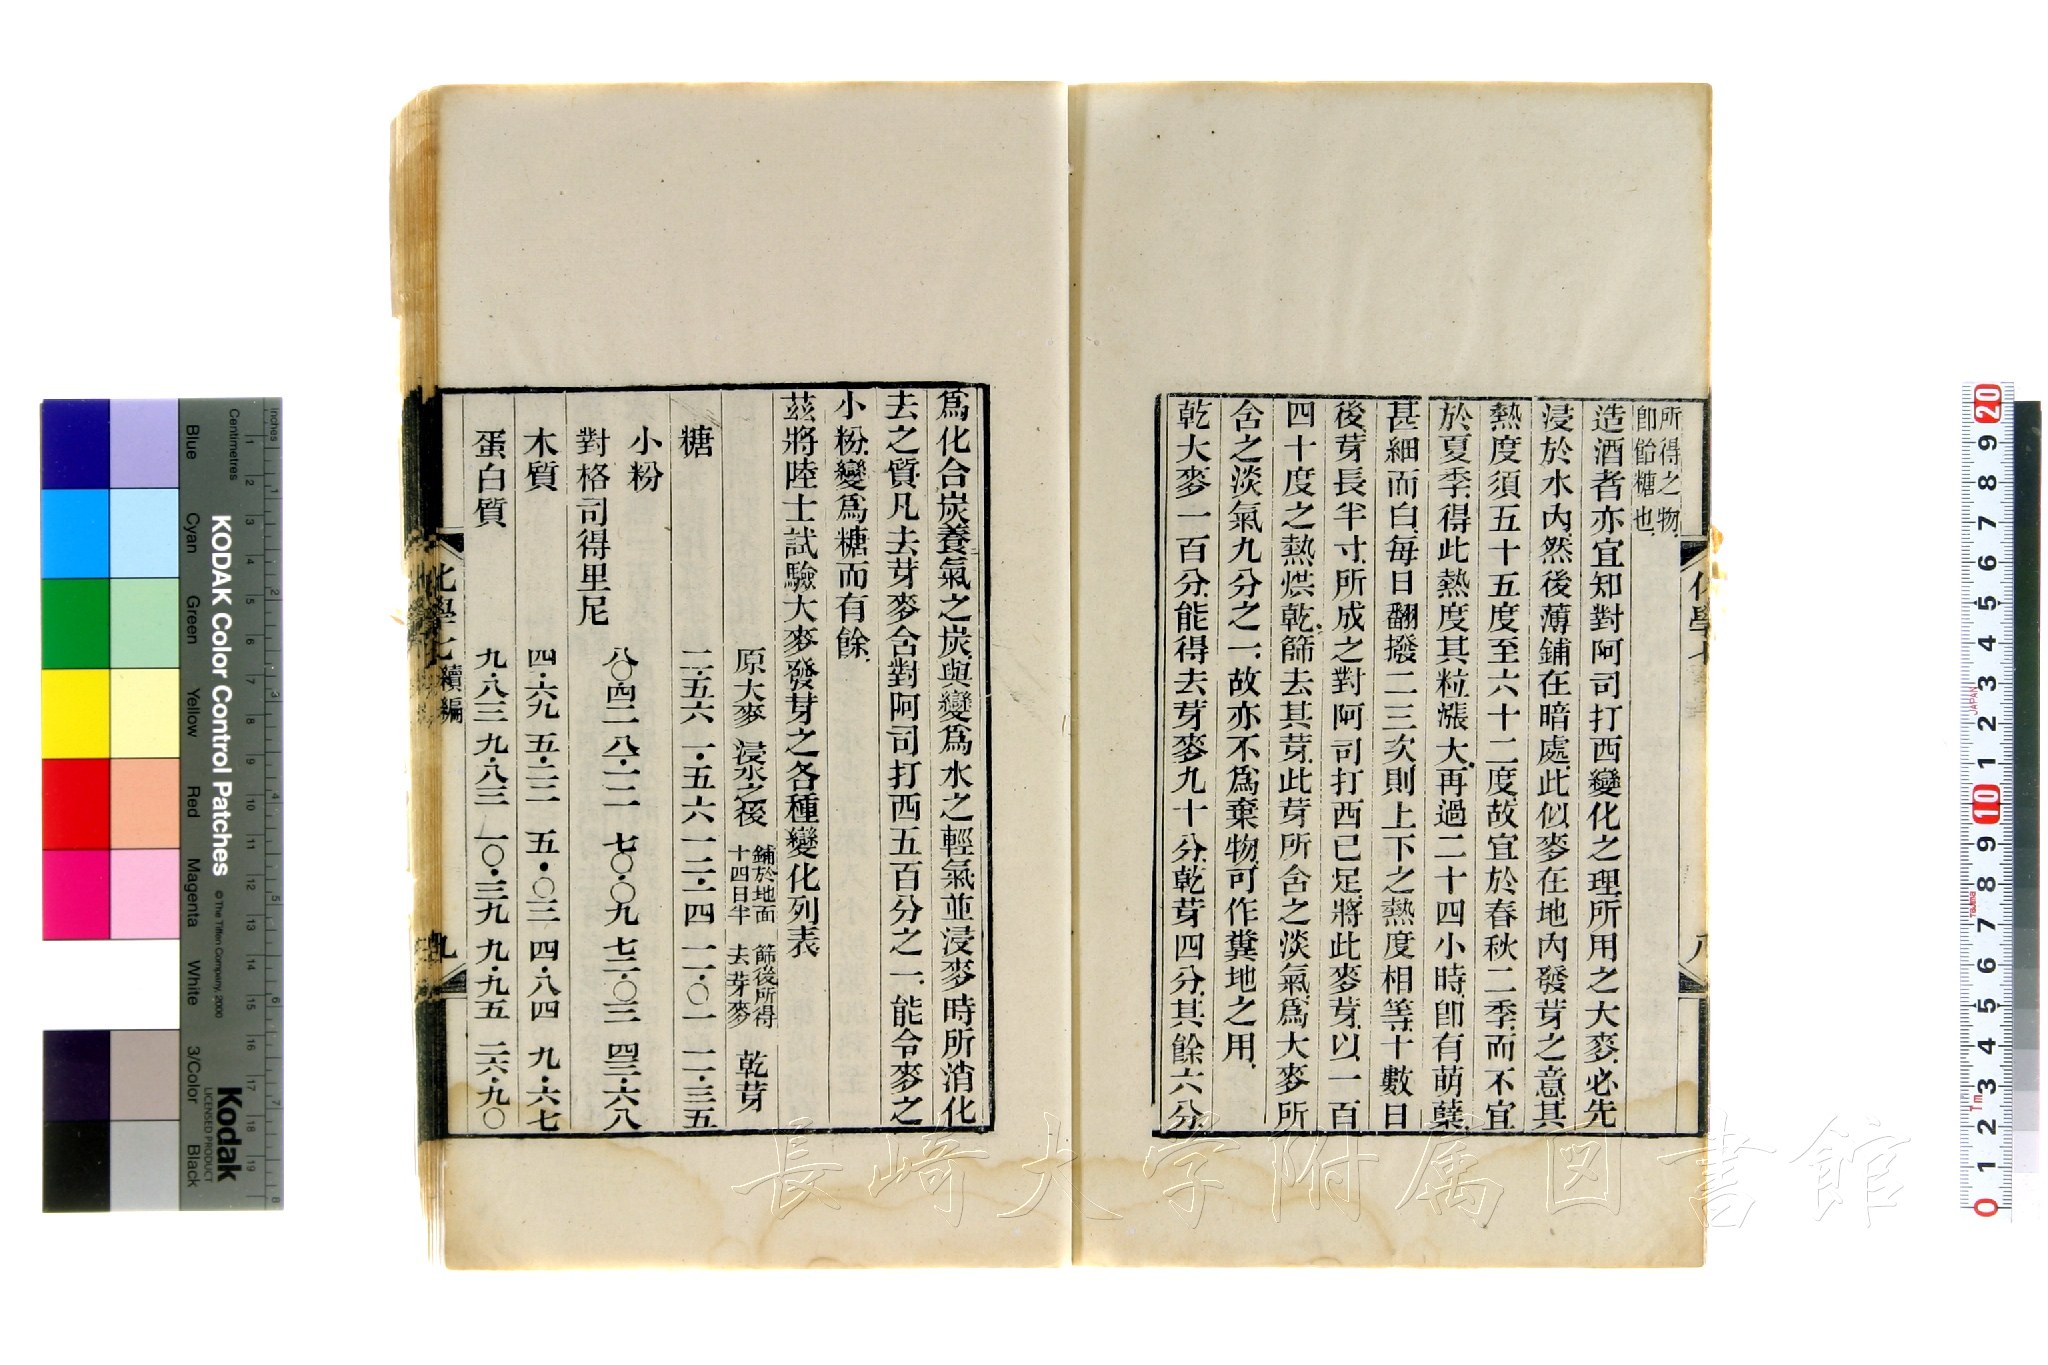 所得之物
即飴糖也
造酒者亦宜知對阿司打西變化之理所用之大麥必先
浸於水內然後薄鋪在暗處此似麥在地內發芽之意其
熱度須五十五度至六十二度故宜於春秋二季而不宜
於夏季得此熱度其粒漲大再過二十四小時卽有萌蘖
甚細而白每日翻撥二三次則上下之熱度相等十數日
後芽長半寸所成之對阿司打西已足將此麥芽以一百
四十度之熱烘乾篩去其芽此芽所含之淡氣爲大麥所
含之淡氣九分之一故亦不爲棄物可作糞地之用
乾大麥一百分能得去芽麥九十分乾芽四分其餘六分
八
爲化合炭養氣之炭與變爲水之輕氣並浸麥時所消化
去之質凡去芽麥含對阿司打西五百分之一能令麥之
小粉變爲糖而有餘
茲將陸士試驗大麥發芽之各種變化列表
原大麥 浸水之後 鋪於地面十四日半 篩後所得去芽麥 乾芽
糖 二·五六 一·五六 一二·一四 一一·〇一 一一·三五
小粉 八〇·四二 八一·一二 七〇·〇九 七二·〇三 四三·六八
對格司得里尼
木質 四·六九 五·二二 五·〇三 四·八四 九·六七
蛋白質 九·八三 九·八三 一〇·三九 九·九五 二六·九〇
化學七 續編
九
KODAK Color Control Patches
© The Tiffen Company, 2000
Kodak
LICENSED PRODUCT
Inches
Centimetres
Blue
Cyan
Green
Yellow
Red
Magenta
White
3/Color
Black
長崎大学附属図書館
JAPAN